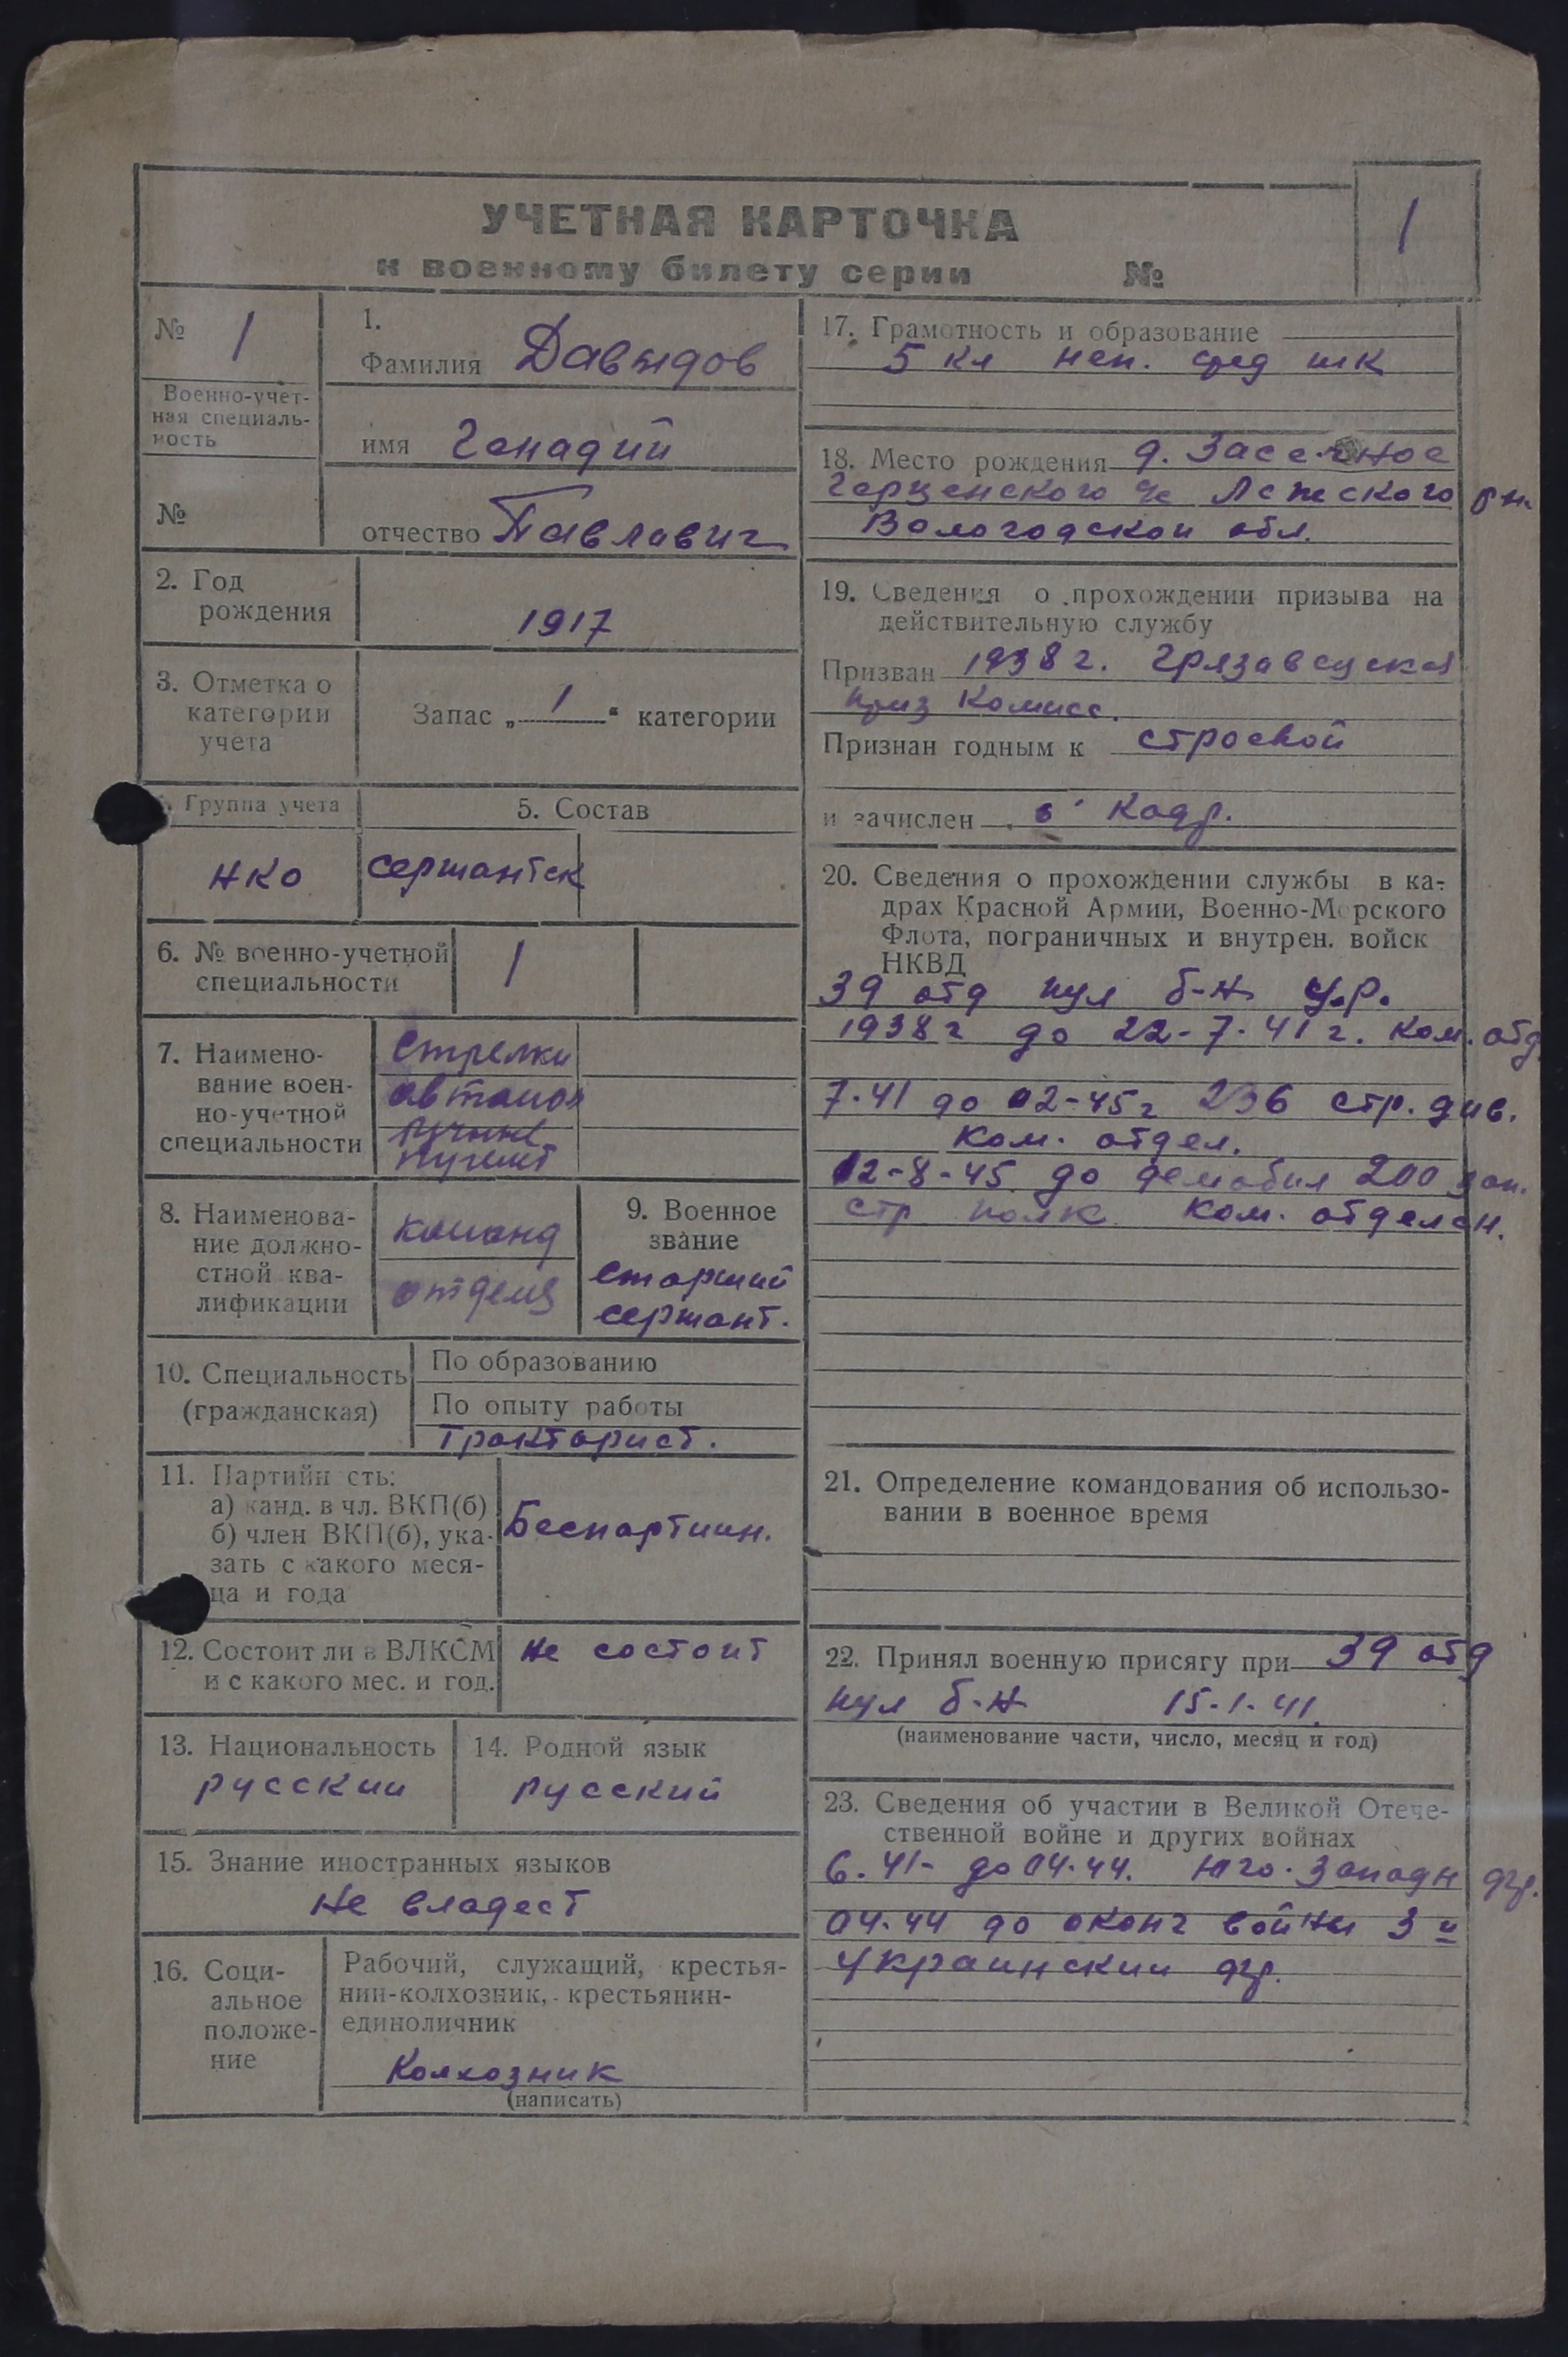 УЧЕТНАЯ КАРТОЧКА
к военному билету серии №
1
№ 1
Военно-учет-
ная специаль-
ность
№
1.
Фамилия Давыдов
имя Генадий
отчество Павлович
2. Год
рождения
1917
3. Отметка о
категории
учета
Запас „ 1 “ категории
Группа учета
НКО
5. Состав
сержантск
6. № военно-учетной
специальности
1
7. Наимено-
вание воен-
но-учетной
специальности
Стрелки
автомот
ручные
пулемет
8. Наименова-
ние должно-
стной ква-
лификации
команд
отделе
9. Военное
звание
старший
сержант.
10. Специальность
(гражданская)
По образованию
По опыту работы
Тракторист.
11. Партийн сть:
а) канд. в чл. ВКП(б)
б) член ВКП(б), ука-
зать с какого меся-
ца и года
Беспартийн.
12. Состоит ли в ВЛКСМ
и с какого мес. и год.
Не состоит
13. Национальность
русский
14. Родной язык
русский
15. Знание иностранных языков
Не владеет
16. Соци-
альное
положе-
ние
Рабочий, служащий, крестья-
нин-колхозник, крестьянин-
единоличник
Колхозник
(написать)
17. Грамотность и образование
5 кл неп. сред шк
18. Место рождения д. Засечное
Герценского с/с Лежского р-н.
Вологодской обл.
19. Сведения о прохождении призыва на
действительную службу
Призван 1938 г. Грязовецкой
приз комисс.
Признан годным к строевой
и зачислен в кадр.
20. Сведения о прохождении службы в ка-
драх Красной Армии, Военно-Морского
Флота, пограничных и внутрен. войск
НКВД
39 отд пул б-н У.Р.
1938 г до 22-7-41 г. ком. отд
7.41 до 02-45 г 236 стр. див.
ком. отдел.
02-8-45 до демобил 200 зап.
стр полк ком. отделен.
21. Определение командования об использо-
вании в военное время
22. Принял военную присягу при 39 отд
пул б-н 15-1-41.
(наименование части, число, месяц и год)
23. Сведения об участии в Великой Отече-
ственной войне и других войнах
6.41- до 04.44. Юго-Западн фр.
04.44 до оконч войны 3 й
Украинский фр.